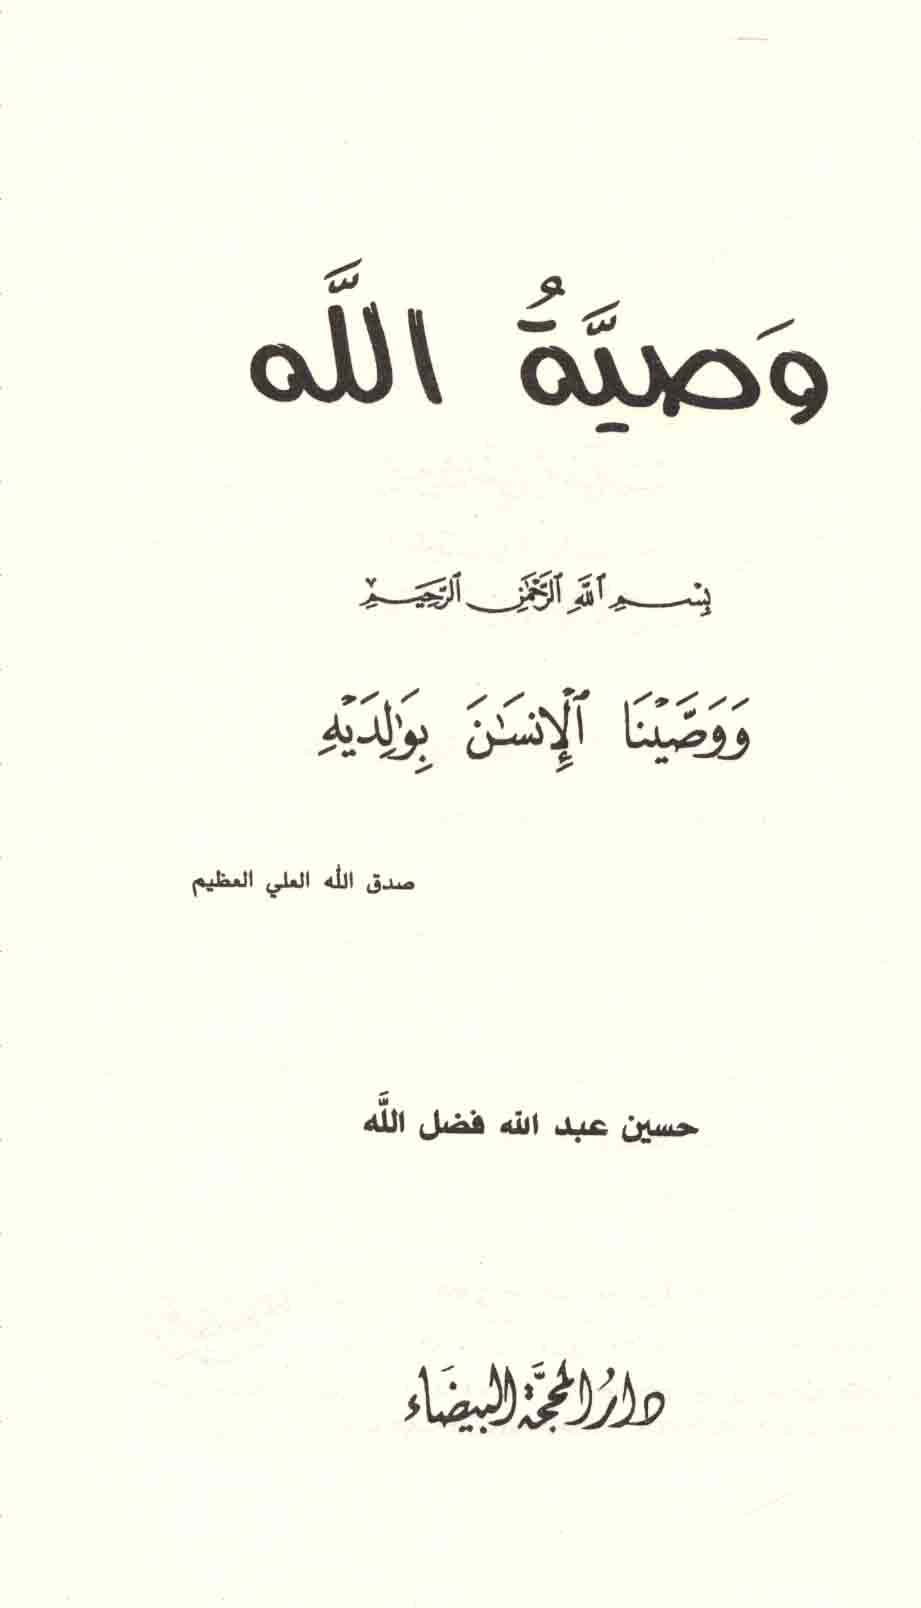 وَصيَّةُ اللَّه
بِسْمِ اللَّهِ الرَّحْمَٰنِ الرَّحِيمِ
وَوَصَّيْنَا ٱلْإِنسَٰنَ بِوَٰلِدَيْهِ
صدق الله العلي العظيم
حسين عبد الله فضل اللَّه
دارُ المحجَّة البيضَاء